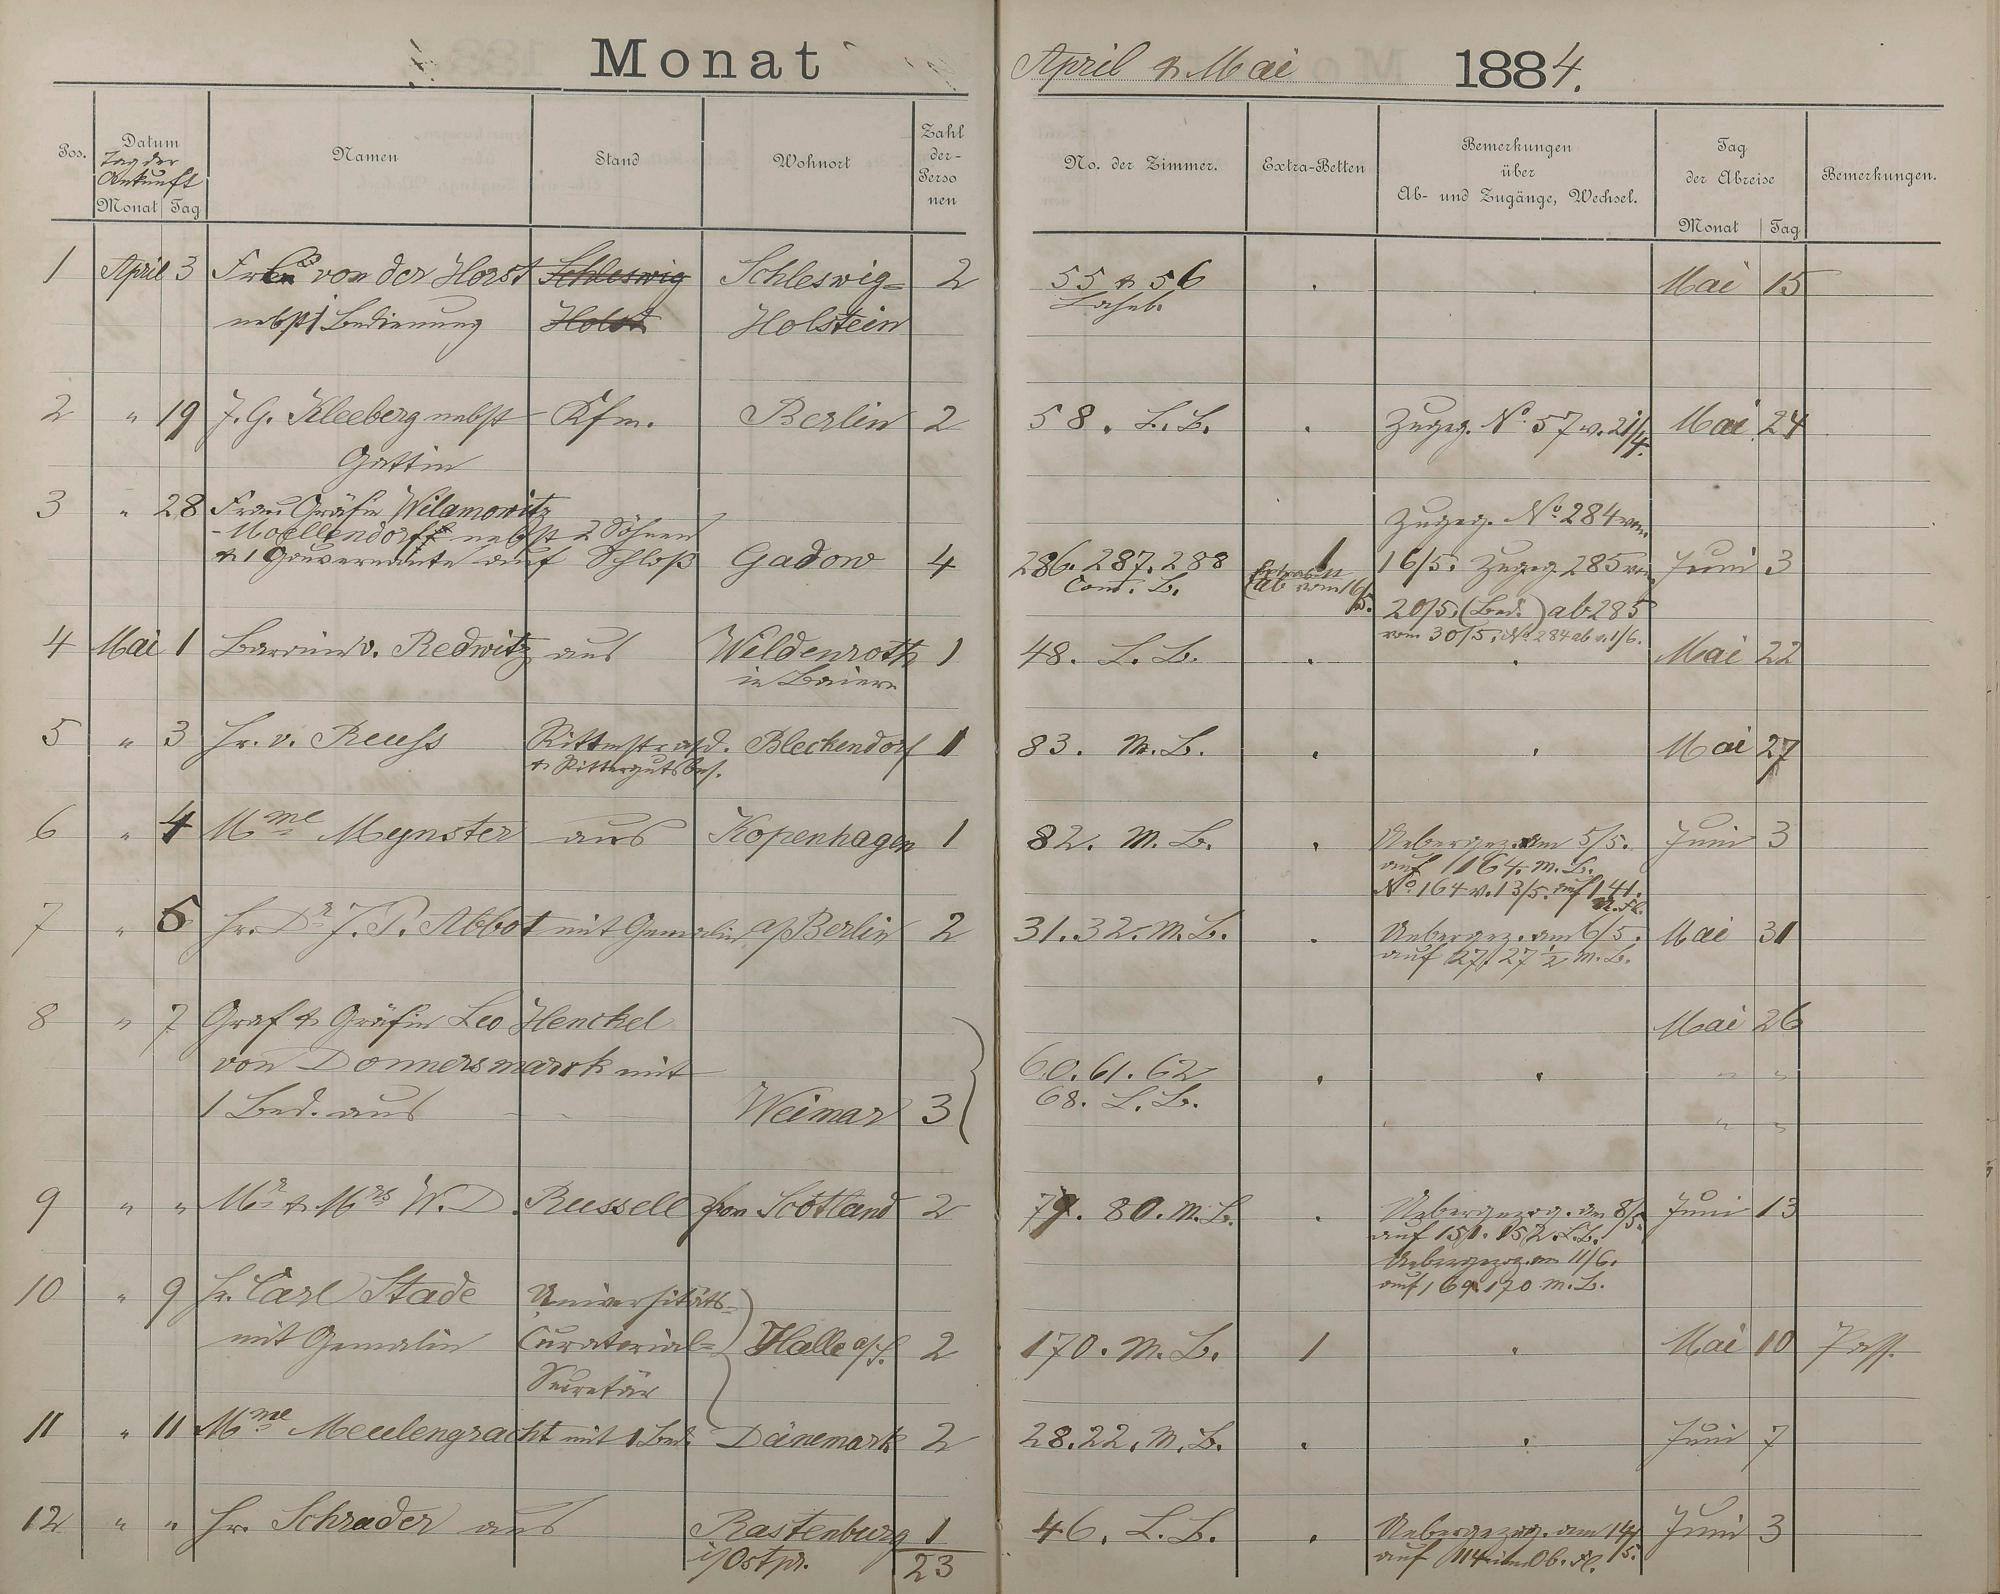 Monat April & Mai 1884.
Pos. Datum Namen Stand Wohnort Zahl der Personen No. der Zimmer. Extra-Betten Bemerkungen über Ab- und Zugänge, Wechsel. Tag der Abreise Bemerkungen.
Tag der Ankunft
Monat Tag Monat Tag
1 April 3 von der Horst Schleswig Schleswig= 2 55 & 56 . . Mai 15
nebst 1 Bedienung Holst Holstein
2 " 19 J. G. Kleeberg nebst Kfm. Berlin 2 58. L.B. . Zugeg. No 57 v. 21/4. Mai 24
Gattin
3 " 28 Frau Gräfin Wilamowitz Zugeg. No 284 vom
-Moellendorff nebst 2 Söhnen
& 1 Gouvernante auf Schloß Gadow 4 286. 287. 288 1 16/5. Zugeg. 285 vom Juni 3
Com. L. ab vom 16/5. 20/5. (Bed.) ab 285
vom 30/5. No 284 ab v. 1/6.
4 Mai 1 Baronin v. Redwitz aus Wildenroth 1 48. L. B. . . Mai 22
in Baiern
5 " 3 Hr. v. Reuss Rittmstr a/d. Bleckendorf 1 83. M.B. . . Mai 27
& Rittergutsbes.
6 " 4 Mme Mynster aus Kopenhagen 1 82. M. B. . Uebergez. am 5/5. Juni 3
auf 164. M. B.
No 164 v. 13/5. auf 141.
7 " 5 Hr. Dr J. P. Abbot mit Gemalin a/ Berlin 2 31. 32. M.B. . Uebergez. am 6/5. Mai 31
auf 27. 27 1/2 M. B.
8 " 7 Graf & Gräfin Leo Henckel Mai 26
von Donnersmarck mit 60. 61. 62 . . " "
1 Bed. aus Weimar 3 68. L. B. " "
9 " " Mr & Mrs W. D. Russell from Scotland 2 79. 80. M.B. . Uebergezog. am 8/5. Juni 13
auf 151. 152. L.B.
Uebergezog. am 11/6.
auf 169. 170 M. B.
10 " 9 Hr. Carl Stade Universitäts-
mit Gemalin Curatorial= Halle a/S. 2 170. M. B. 1 . Mai 10 Pass.
Secretär
11 " 11 Mme Meulengracht mit 1 Bed. Dänemark 2 28. 22. M. B. . . Juni 7
12 " " Hr. Schrader aus Rastenburg 1 46. L. B. . Uebergezog. am 14/5. Juni 3
i/Ostpr. 23 auf 114 im Ob. Fl.